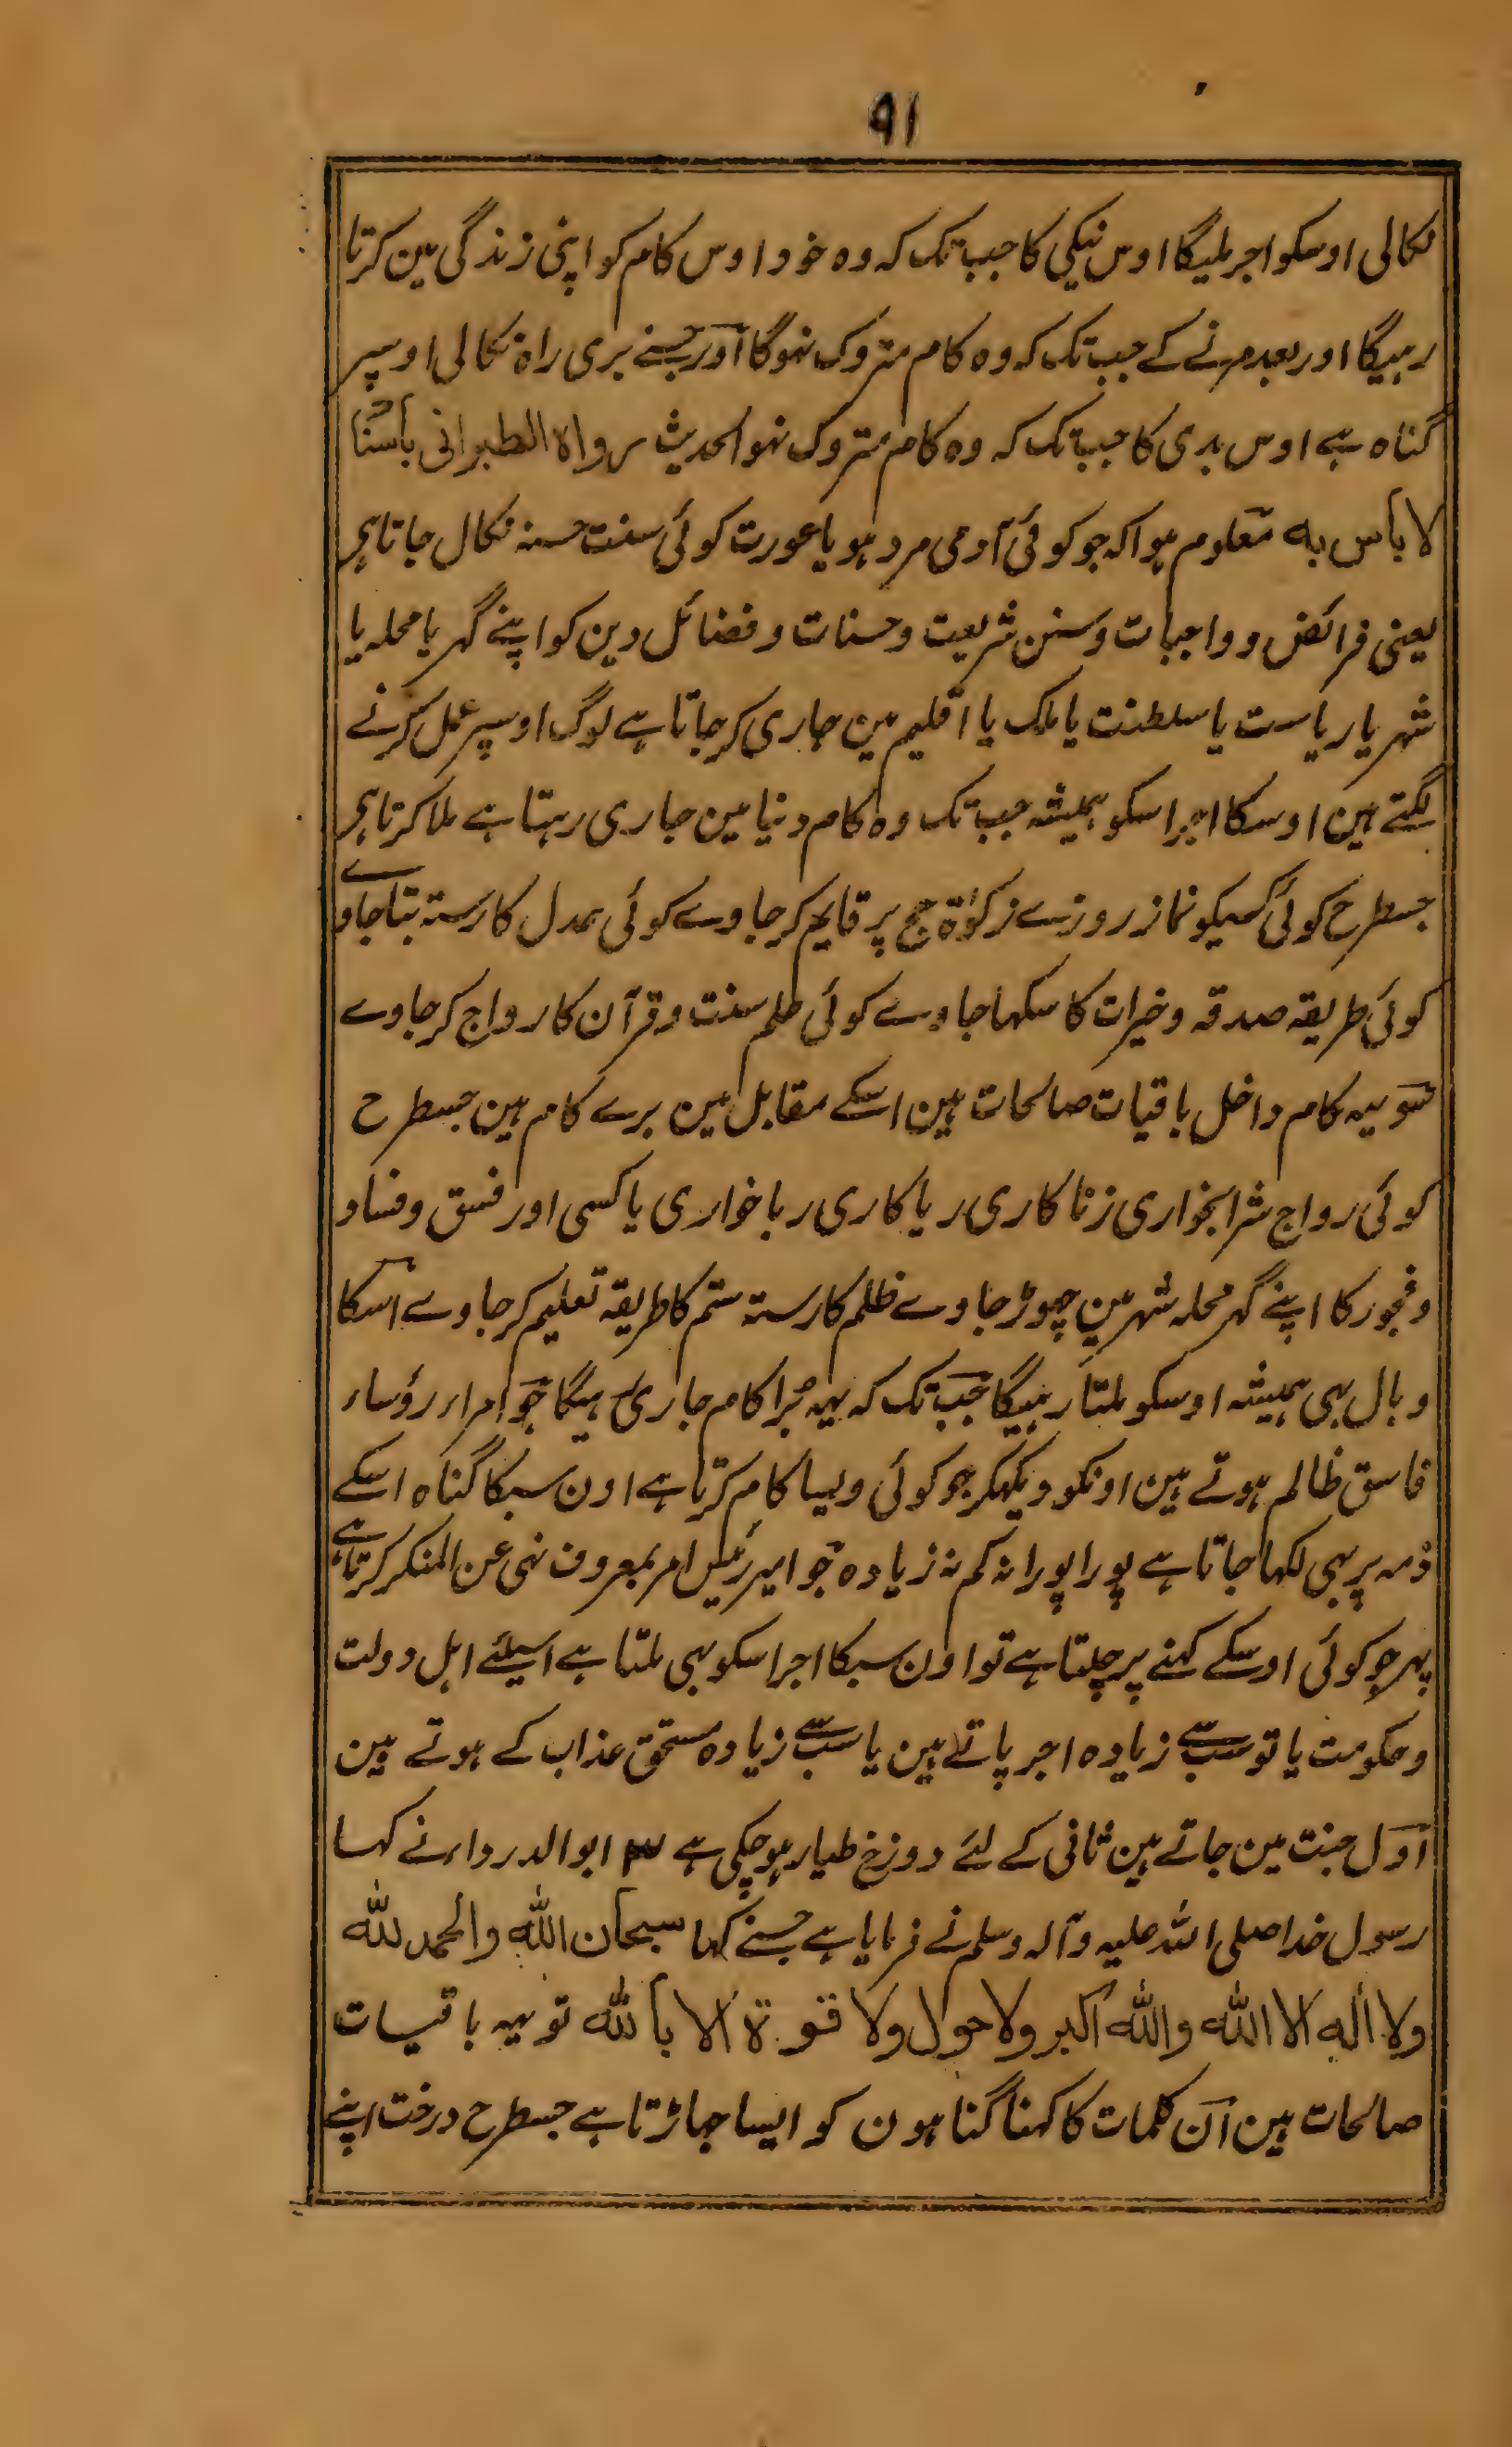 ٩١
نکالی اوسکو اجر ملیگا اوس نیکی کا جب تک کہ وہ خود اوس کام کو اپنی زندگی مین کرتا
رہیگا اور بعد مرنے کے جب تک کہ وہ کام متروک نہوگا اور جسنے بری راہ نکالی اوسپر
گناہ ہے اوس بدی کا جب تک کہ وہ کام متروک نہو الحدیث رواہ الطبرانی باسناد
لا بأس بہ معلوم ہوا کہ جو کوئی آدمی مرد ہو یا عورت کوئی سنت حسنہ نکال جاتا ہی
یعنی فرائض و واجبات و سنن شریعت و حسنات و فضائل دین کو اپنے گہر یا محلہ یا
شہر یا ریاست یا سلطنت یا ملک یا اقلیم مین جاری کر جاتا ہے لوگ اوسپر عمل کرنے
لگتے ہین اوسکا اجر اسکو ہمیشہ جب تک وہ کام دنیا مین جاری رہتا ہے ملا کرتا ہی
جسطرح کوئی کسیکو نماز روزے زکوٰۃ حج پر قایم کر جاوے کوئی ہمدل کا رستہ بتا جاوے
کوئی طریقہ صدقہ و خیرات کا سکہا جاوے کوئی علم سنت و قرآن کا رواج کر جاوے
سو یہ کام داخل باقیات صالحات ہین اسکے مقابل مین برے کام ہین جسطرح
کوئی رواج شرابخواری زنا کاری ریا کاری ربا خواری یا کسی اور فسق و فساد
و فجور کا اپنے گہر محلہ شہر مین چہوڑ جاوے ظلم کا رستہ ستم کا طریقہ تعلیم کر جاوے اسکا
وبال بہی ہمیشہ اوسکو ملتا رہیگا جب تک کہ یہہ بُرا کام جاری رہیگا جو امراء رؤساء
فاسق ظالم ہوتے ہین اونکو دیکہکر جو کوئی ویسا کام کرتا ہے اون سبکا گناہ اسکے
ذمہ پر بہی لکہا جاتا ہے پورا پورا نہ کم نہ زیادہ جو امیر رئیس امر بمعروف نہی عن المنکر کرتا ہے
پہر جو کوئی اوسکے کہنے پر چلتا ہے تو اون سبکا اجر اسکو بہی ملتا ہے اسیلئے اہل دولت
و حکومت یا تو سب سے زیادہ اجر پاتے ہین یا سب سے زیادہ مستحق عذاب کے ہوتے ہین
اول جنت مین جاتے ہین ثانی کے لئے دوزخ طیار ہو چکی ہے ابو الدرداء نے کہا
رسول خدا صلی اللہ علیہ وآلہ وسلم نے فرمایا ہے جسنے کہا سبحان اللہ والحمد للہ
ولا الہ الا اللہ واللہ اکبر ولا حول ولا قوۃ الا باللہ تو یہہ باقیات
صالحات ہین ان کلمات کا کہنا گناہون کو ایسا جہاڑتا ہے جسطرح درخت اپنے